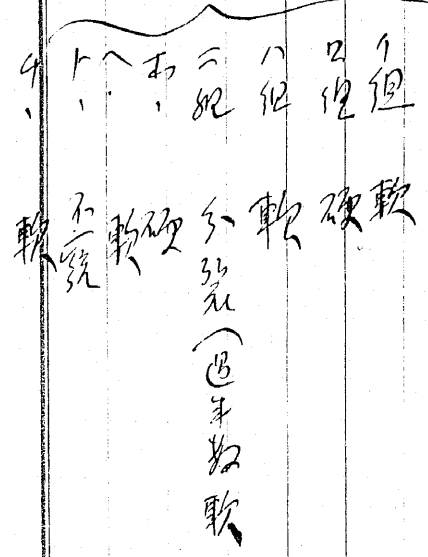 イ組 軟
ロ組 硬
ハ組 軟
ニ組 分裂(過半数軟
ホ、 硬
ヘ、 軟
ト、 不一致
チ、 軟